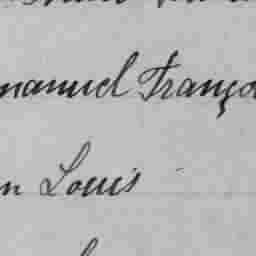 manuel Franço
n Louis